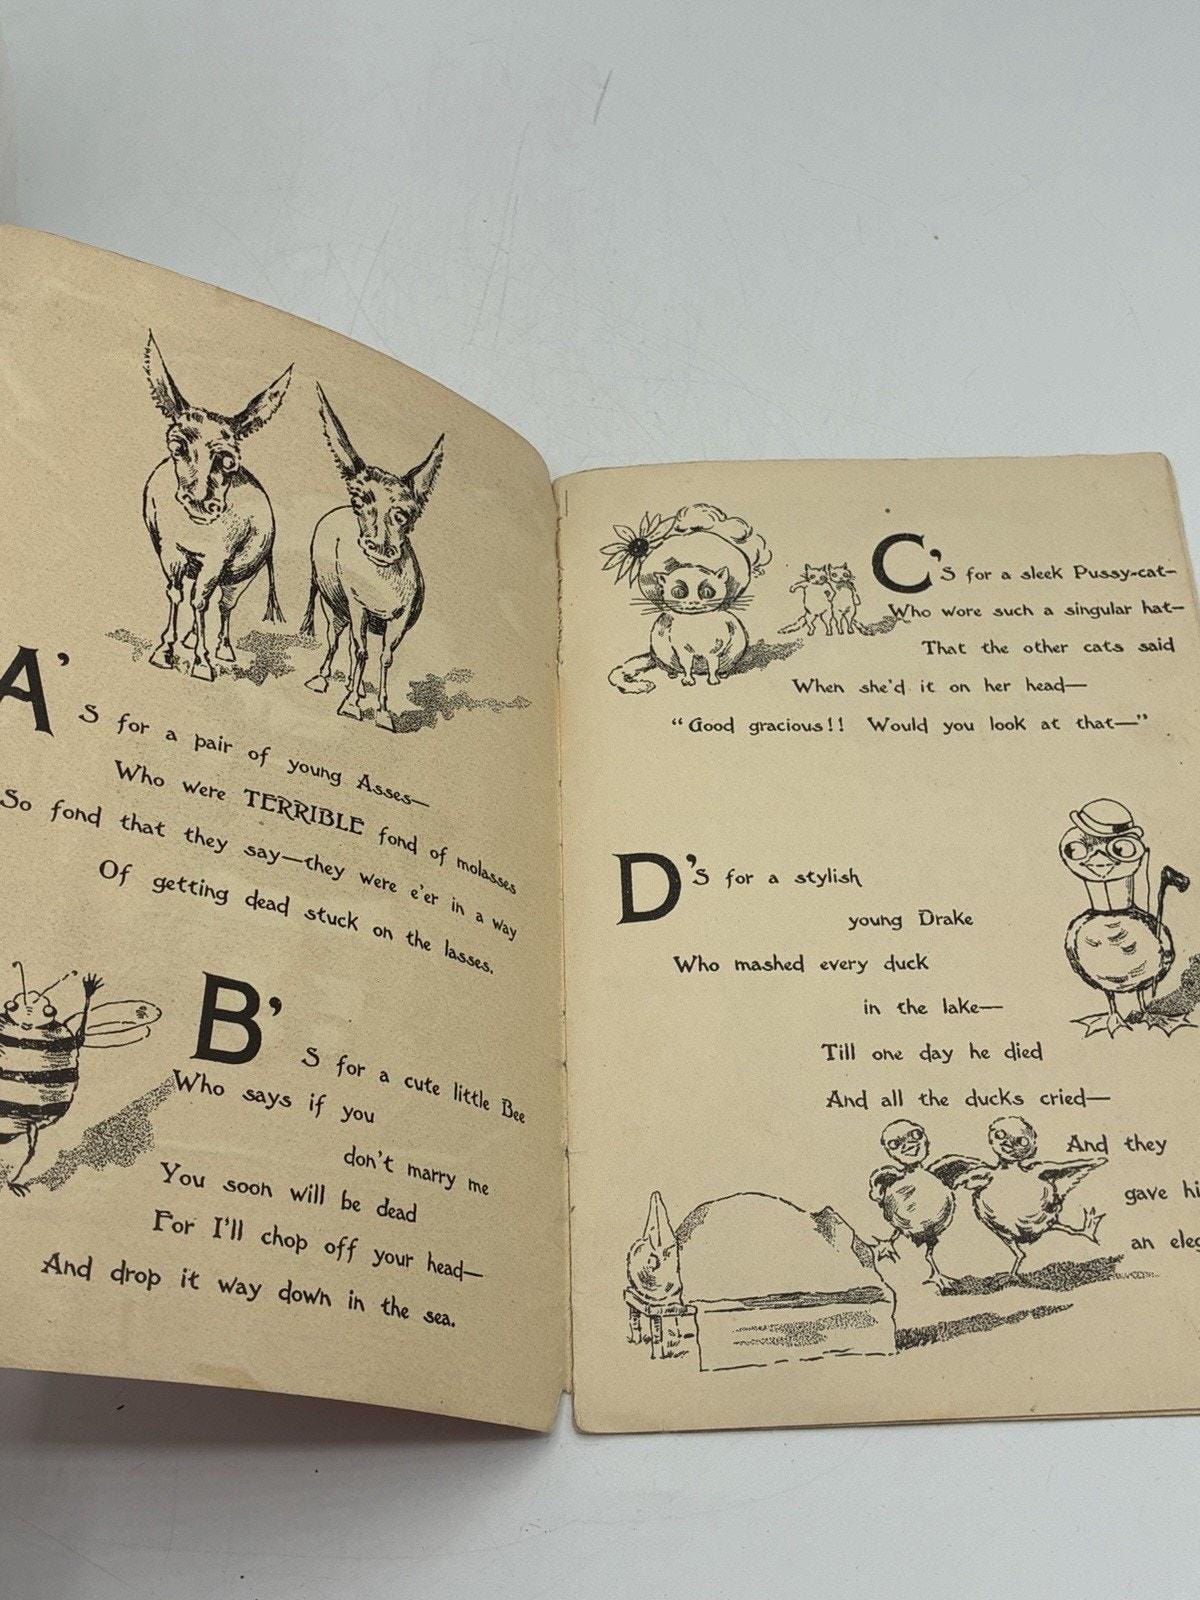 A's for a pair of young Asses—
Who were TERRIBLE fond of molasses
So fond that they say—they were e'er in a way
Of getting dead stuck on the lasses.
B's for a cute little Bee
Who says if you
don't marry me
You soon will be dead
For I'll chop off your head—
And drop it way down in the sea.
C's for a sleek Pussy-cat—
Who wore such a singular hat—
That the other cats said
When she'd it on her head—
"Good gracious!! Would you look at that—"
D's for a stylish
young Drake
Who mashed every duck
in the lake—
Till one day he died
And all the ducks cried—
And they
gave
an